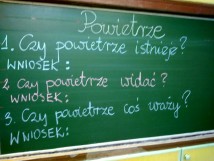 Powietrze
1. Czy powietrze istnieje?
WNIOSEK:
2. Czy powietrze widać?
WNIOSEK:
3. Czy powietrze coś waży?
WNIOSEK: